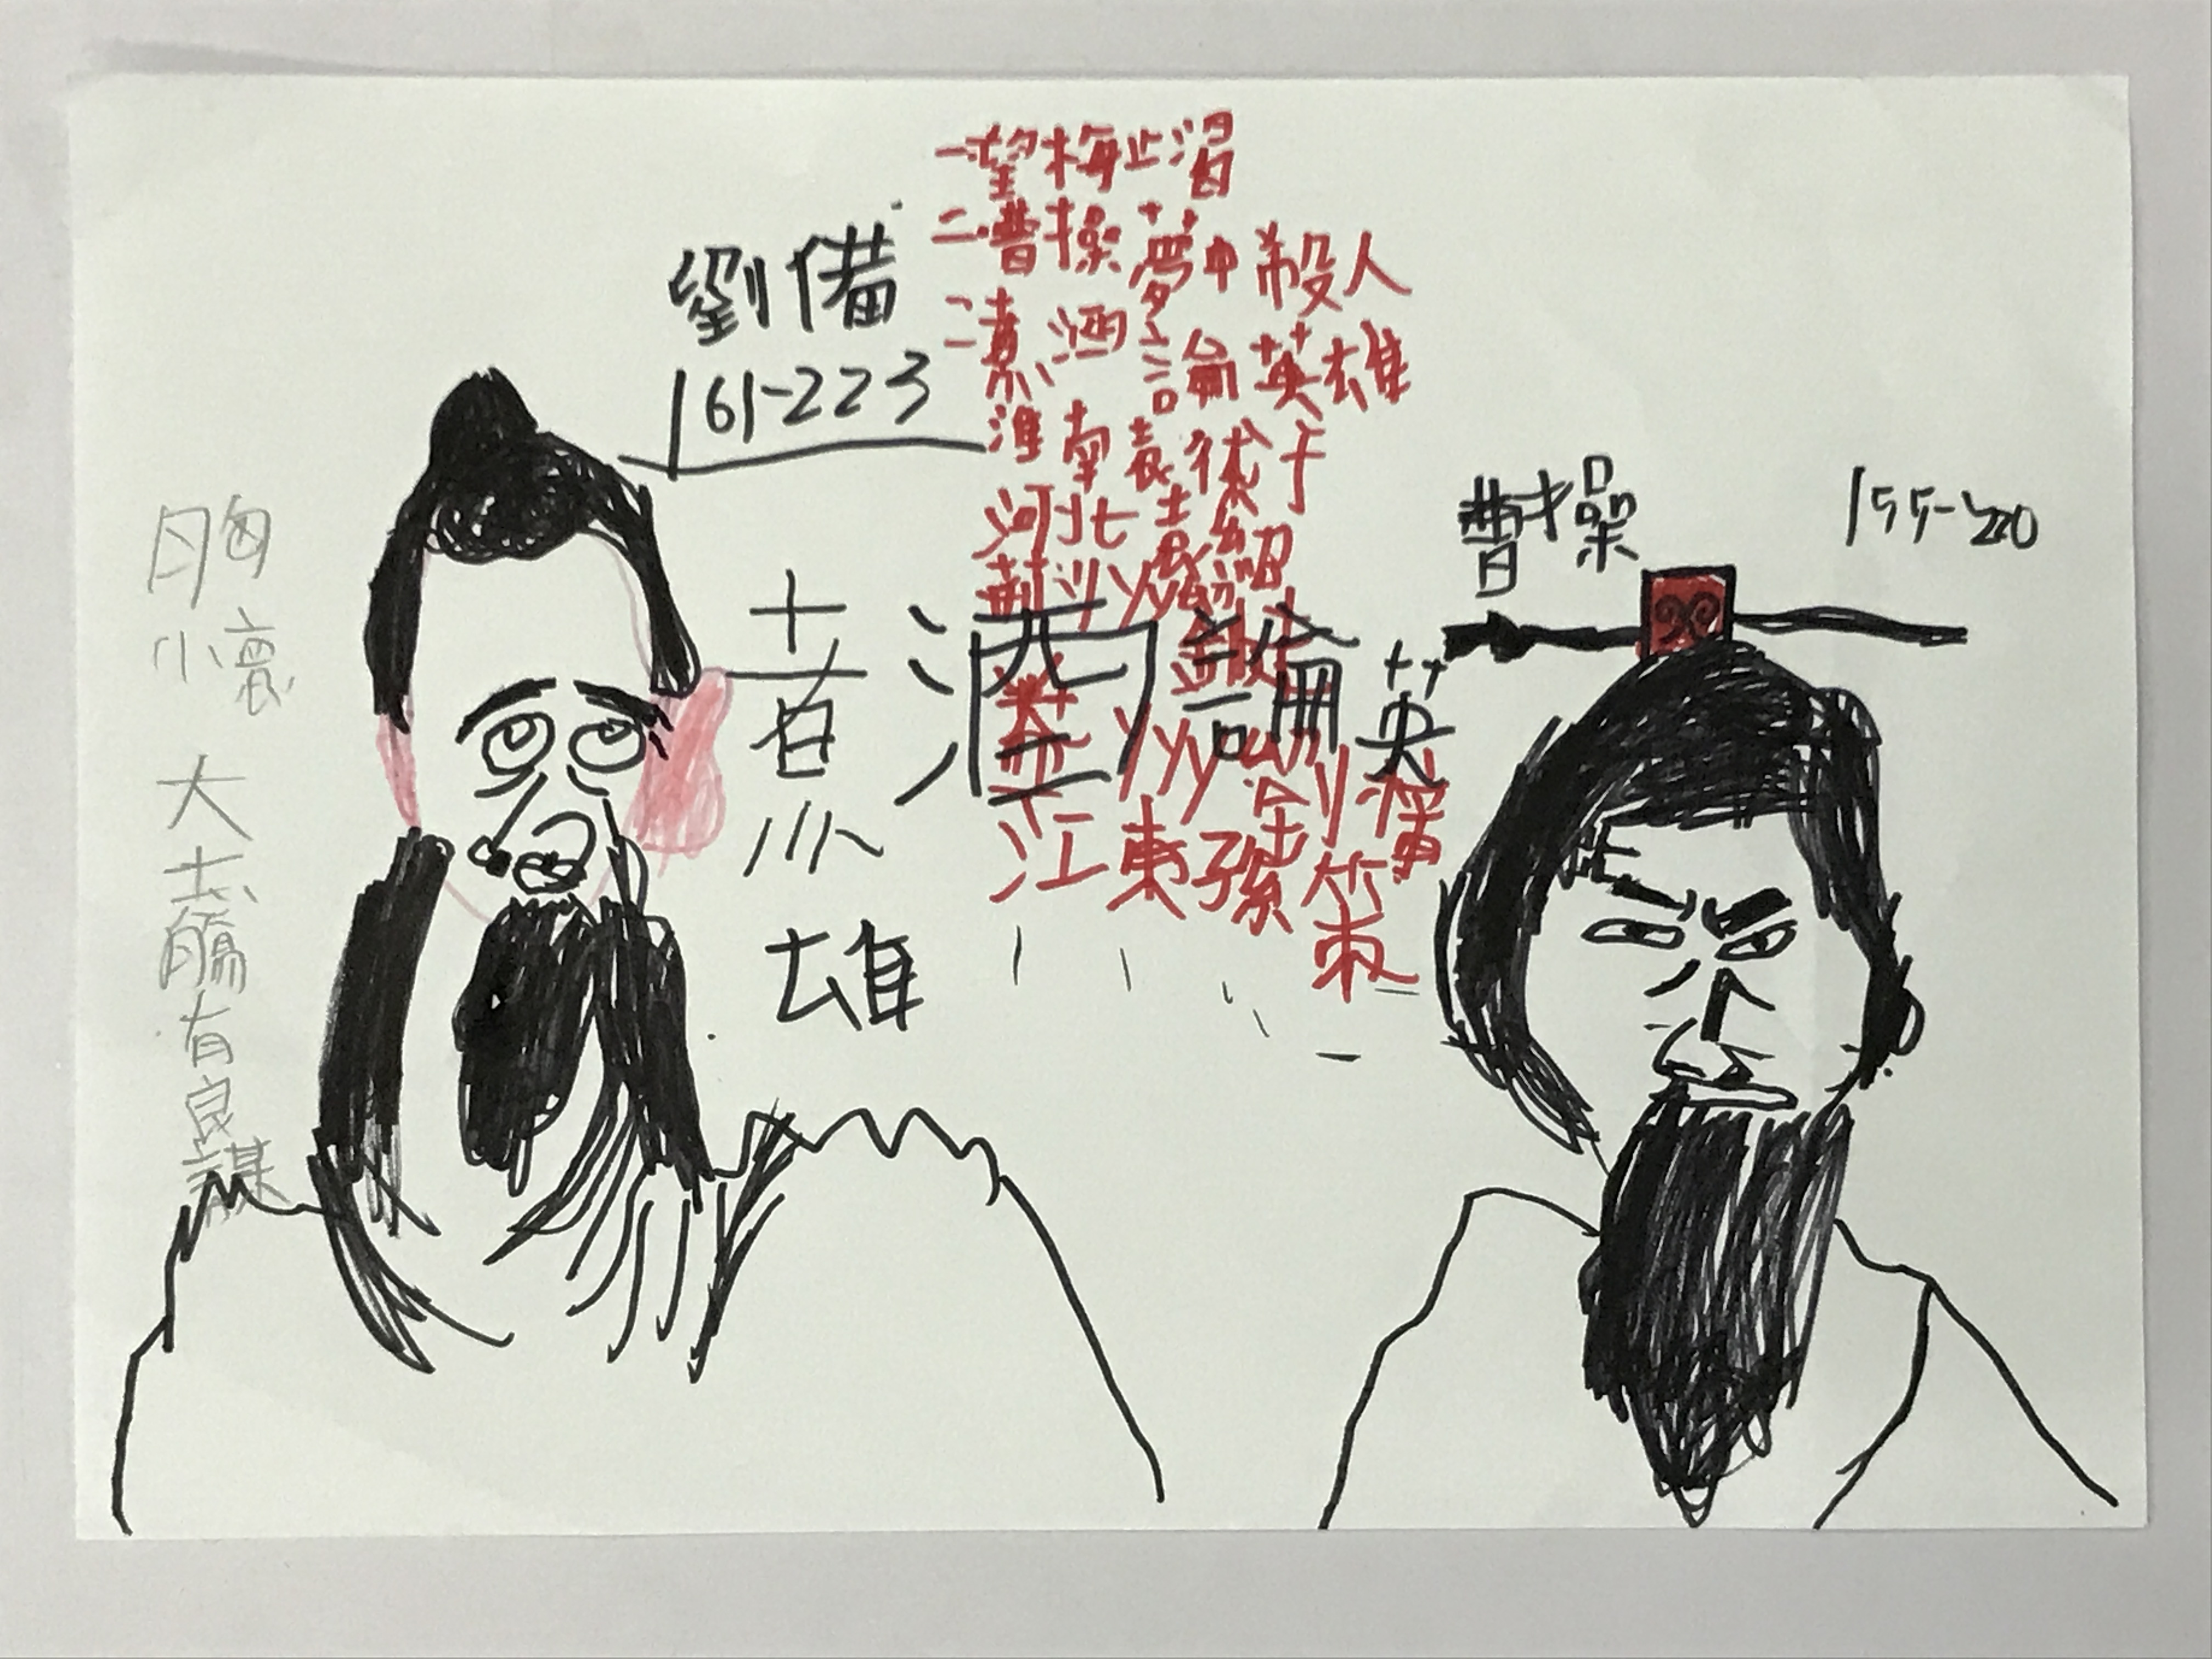 一望梅止渴
二曹操夢中殺人
三煮酒論英雄
淮南袁術于
河北袁紹
荊州劉表
益州劉璋
江東孫策
劉備
161-223
曹操
155-220
煮酒論英
雄
胸
懷
大
志
腸
有
良
謀